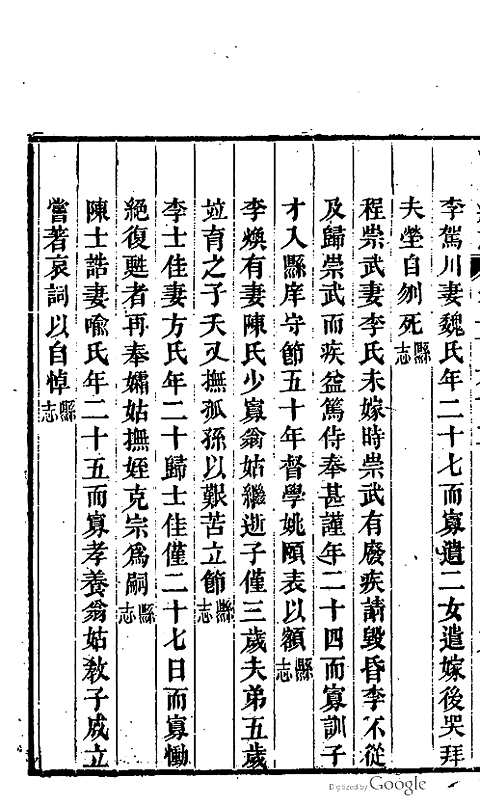 李駕川妻魏氏年二十七而寡遺二女遣嫁後哭拜
夫塋自刎死縣志
程崇武妻李氏未嫁時崇武有廢疾請毀昏李不從
及歸崇武而疾益篤侍奉甚謹年二十四而寡訓子
才入縣庠守節五十年督學姚頤表以額縣志
李煥有妻陳氏少寡翁姑繼逝子僅三歲夫弟五歲
竝育之子夭又撫孤孫以艱苦立節縣志
李士佳妻方氏年二十歸士佳僅二十七日而寡慟
絕復甦者再奉孀姑撫姪克宗爲嗣縣志
陳士誥妻喻氏年二十五而寡孝養翁姑敎子成立
嘗著哀詞以自悼縣志
Digitized by Google